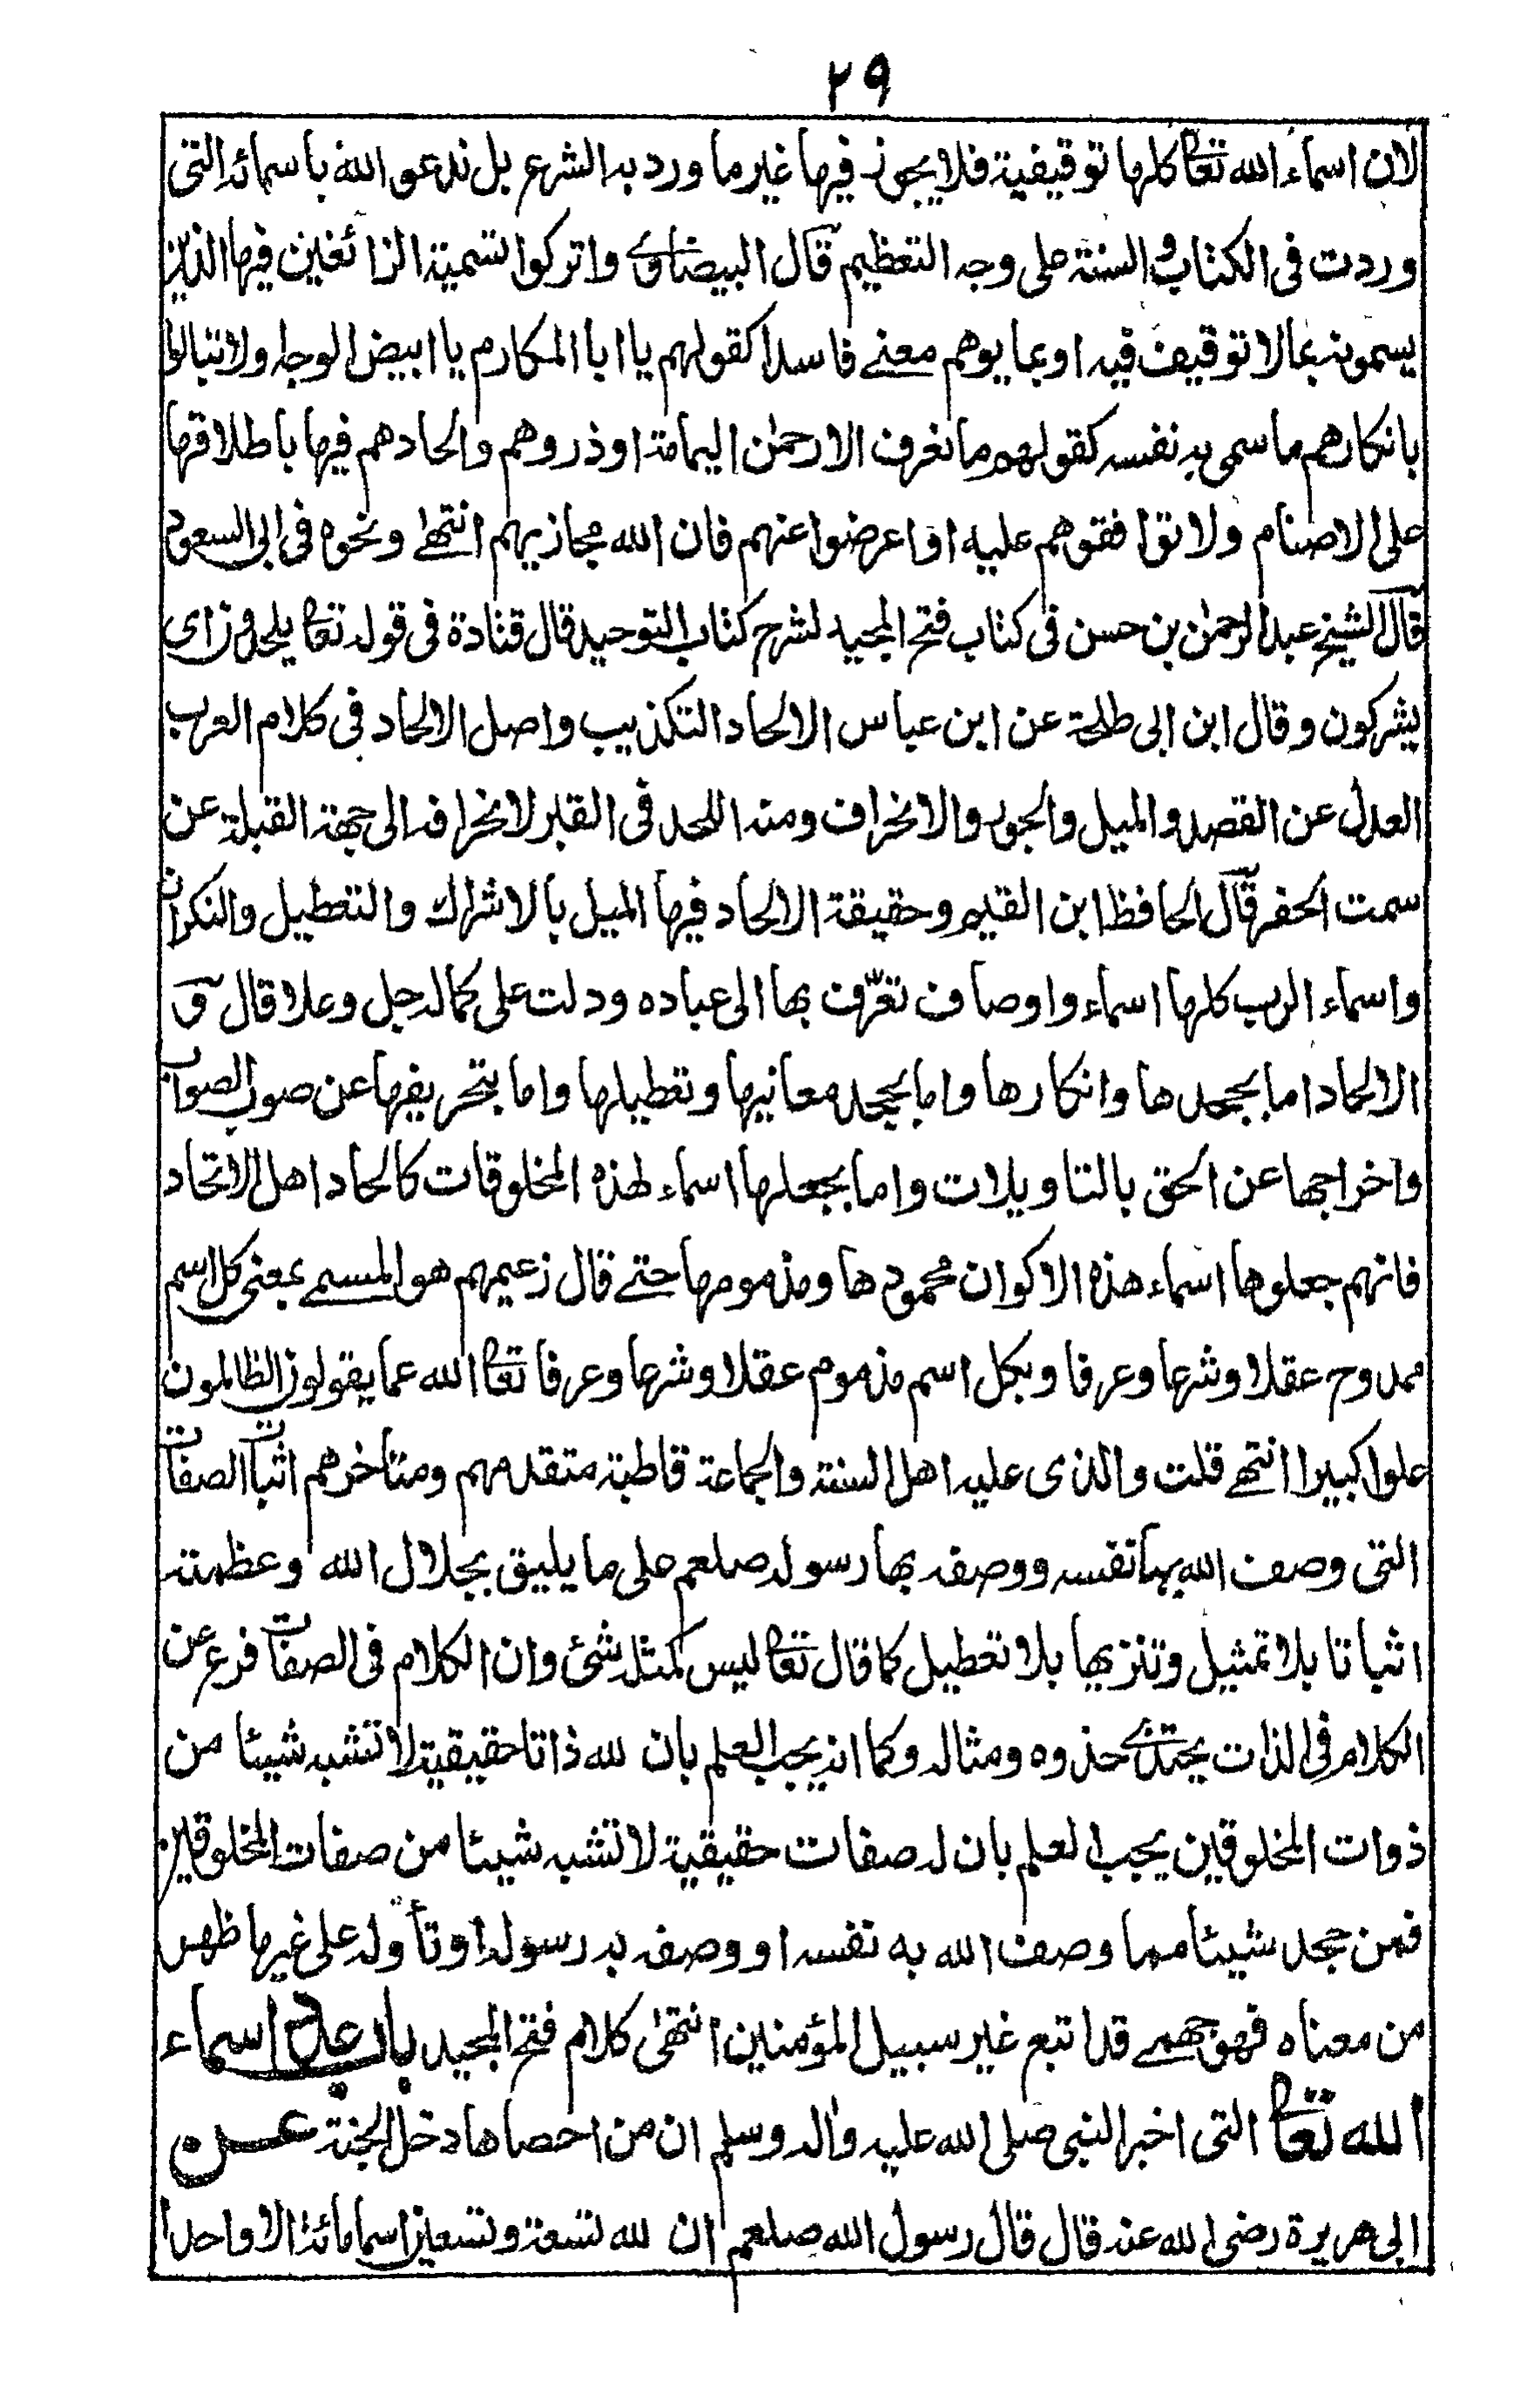 ٢٩
لان اسماء الله تعا كلها توقيفية فلا يجوز فيها غير ما ورد به الشرع بل ندعو الله باسمائه التى
وردت فى الكتاب والسنة على وجه التعظيم قال البيضاوى واتركوا تسمية الزائغين فيها الذين
يسمونه بما لا توقيف فيه او بما يوهم معنى فاسدا كقولهم يا ابا المكارم يا ابيض الوجه ولا تبالوا
بانكارهم ما سمى به نفسه كقولهم ما نعرف الا رحمٰن اليمامة او ذروهم والحادهم فيها باطلاقها
على الاصنام ولا توافقوهم عليه او اعرضوا عنهم فان الله مجازيهم انتهى ونحوه فى ابى السعود
قال الشيخ عبد الرحمٰن بن حسن فى كتاب فتح المجيد لشرح كتاب التوحيد قال قتادة فى قوله تعا يلحدون اى
يشركون وقال ابن ابى طلحة عن ابن عباس الالحاد التكذيب واصل الالحاد فى كلام العرب
العدل عن القصد والميل والجور والانحراف ومنه اللحد فى القبر لانحرافه الى جهة القبلة عن
سمت الحفر قال الحافظ ابن القيم وحقيقة الالحاد فيها الميل بالاشراك والتعطيل والنكران
واسماء الرب كلها اسماء واوصاف تعرّف بها الى عباده ودلت على كماله جل وعلا قال ق
الالحاد اما بجحدها وانكارها واما بجحد معانيها وتعطيلها واما بتحريفها عن صوب الصواب
واخراجها عن الحق بالتاويلات واما بجعلها اسماء لهذه المخلوقات كالحاد اهل الاتحاد
فانهم جعلوها اسماء هذه الاكوان محمودها ومذمومها حتى قال زعيمهم هو المسمى بمعنى كل اسم
ممدوح عقلا وشرعا وعرفا وبكل اسم مذموم عقلا وشرعا وعرفا تعا الله عما يقولون الظالمون
علوا كبيرا انتهى قلت والذى عليه اهل السنة والجماعة قاطبة متقدمهم ومتأخرهم اثبات الصفات
التى وصف الله بها نفسه ووصفه بها رسوله صلعم على ما يليق بجلال الله وعظمته
اثباتا بلا تمثيل وتنزيها بلا تعطيل كما قال تعا ليس كمثله شئ وان الكلام فى الصفات فرع عن
الكلام فى الذات يحتذى حذوه ومثاله وكما انه يجب العلم بان لله ذاتا حقيقية لا تشبه شيئا من
ذوات المخلوقين يجب العلم بان له صفات حقيقية لا تشبه شيئا من صفات المخلوقين
فمن جحد شيئا مما وصف الله به نفسه او وصفه به رسوله او تأوله على غير ما ظهر
من معناه فهو جهمى قد اتبع غير سبيل المؤمنين انتهٰى كلام فتح المجيد باب عدد اسماء
الله تعا التى اخبر النبى صلى الله عليه واٰله وسلم ان من احصاها دخل الجنة عن
ابى هريرة رضى الله عنه قال قال رسول الله صلعم ان لله تسعة وتسعين اسما مائة الا واحدا